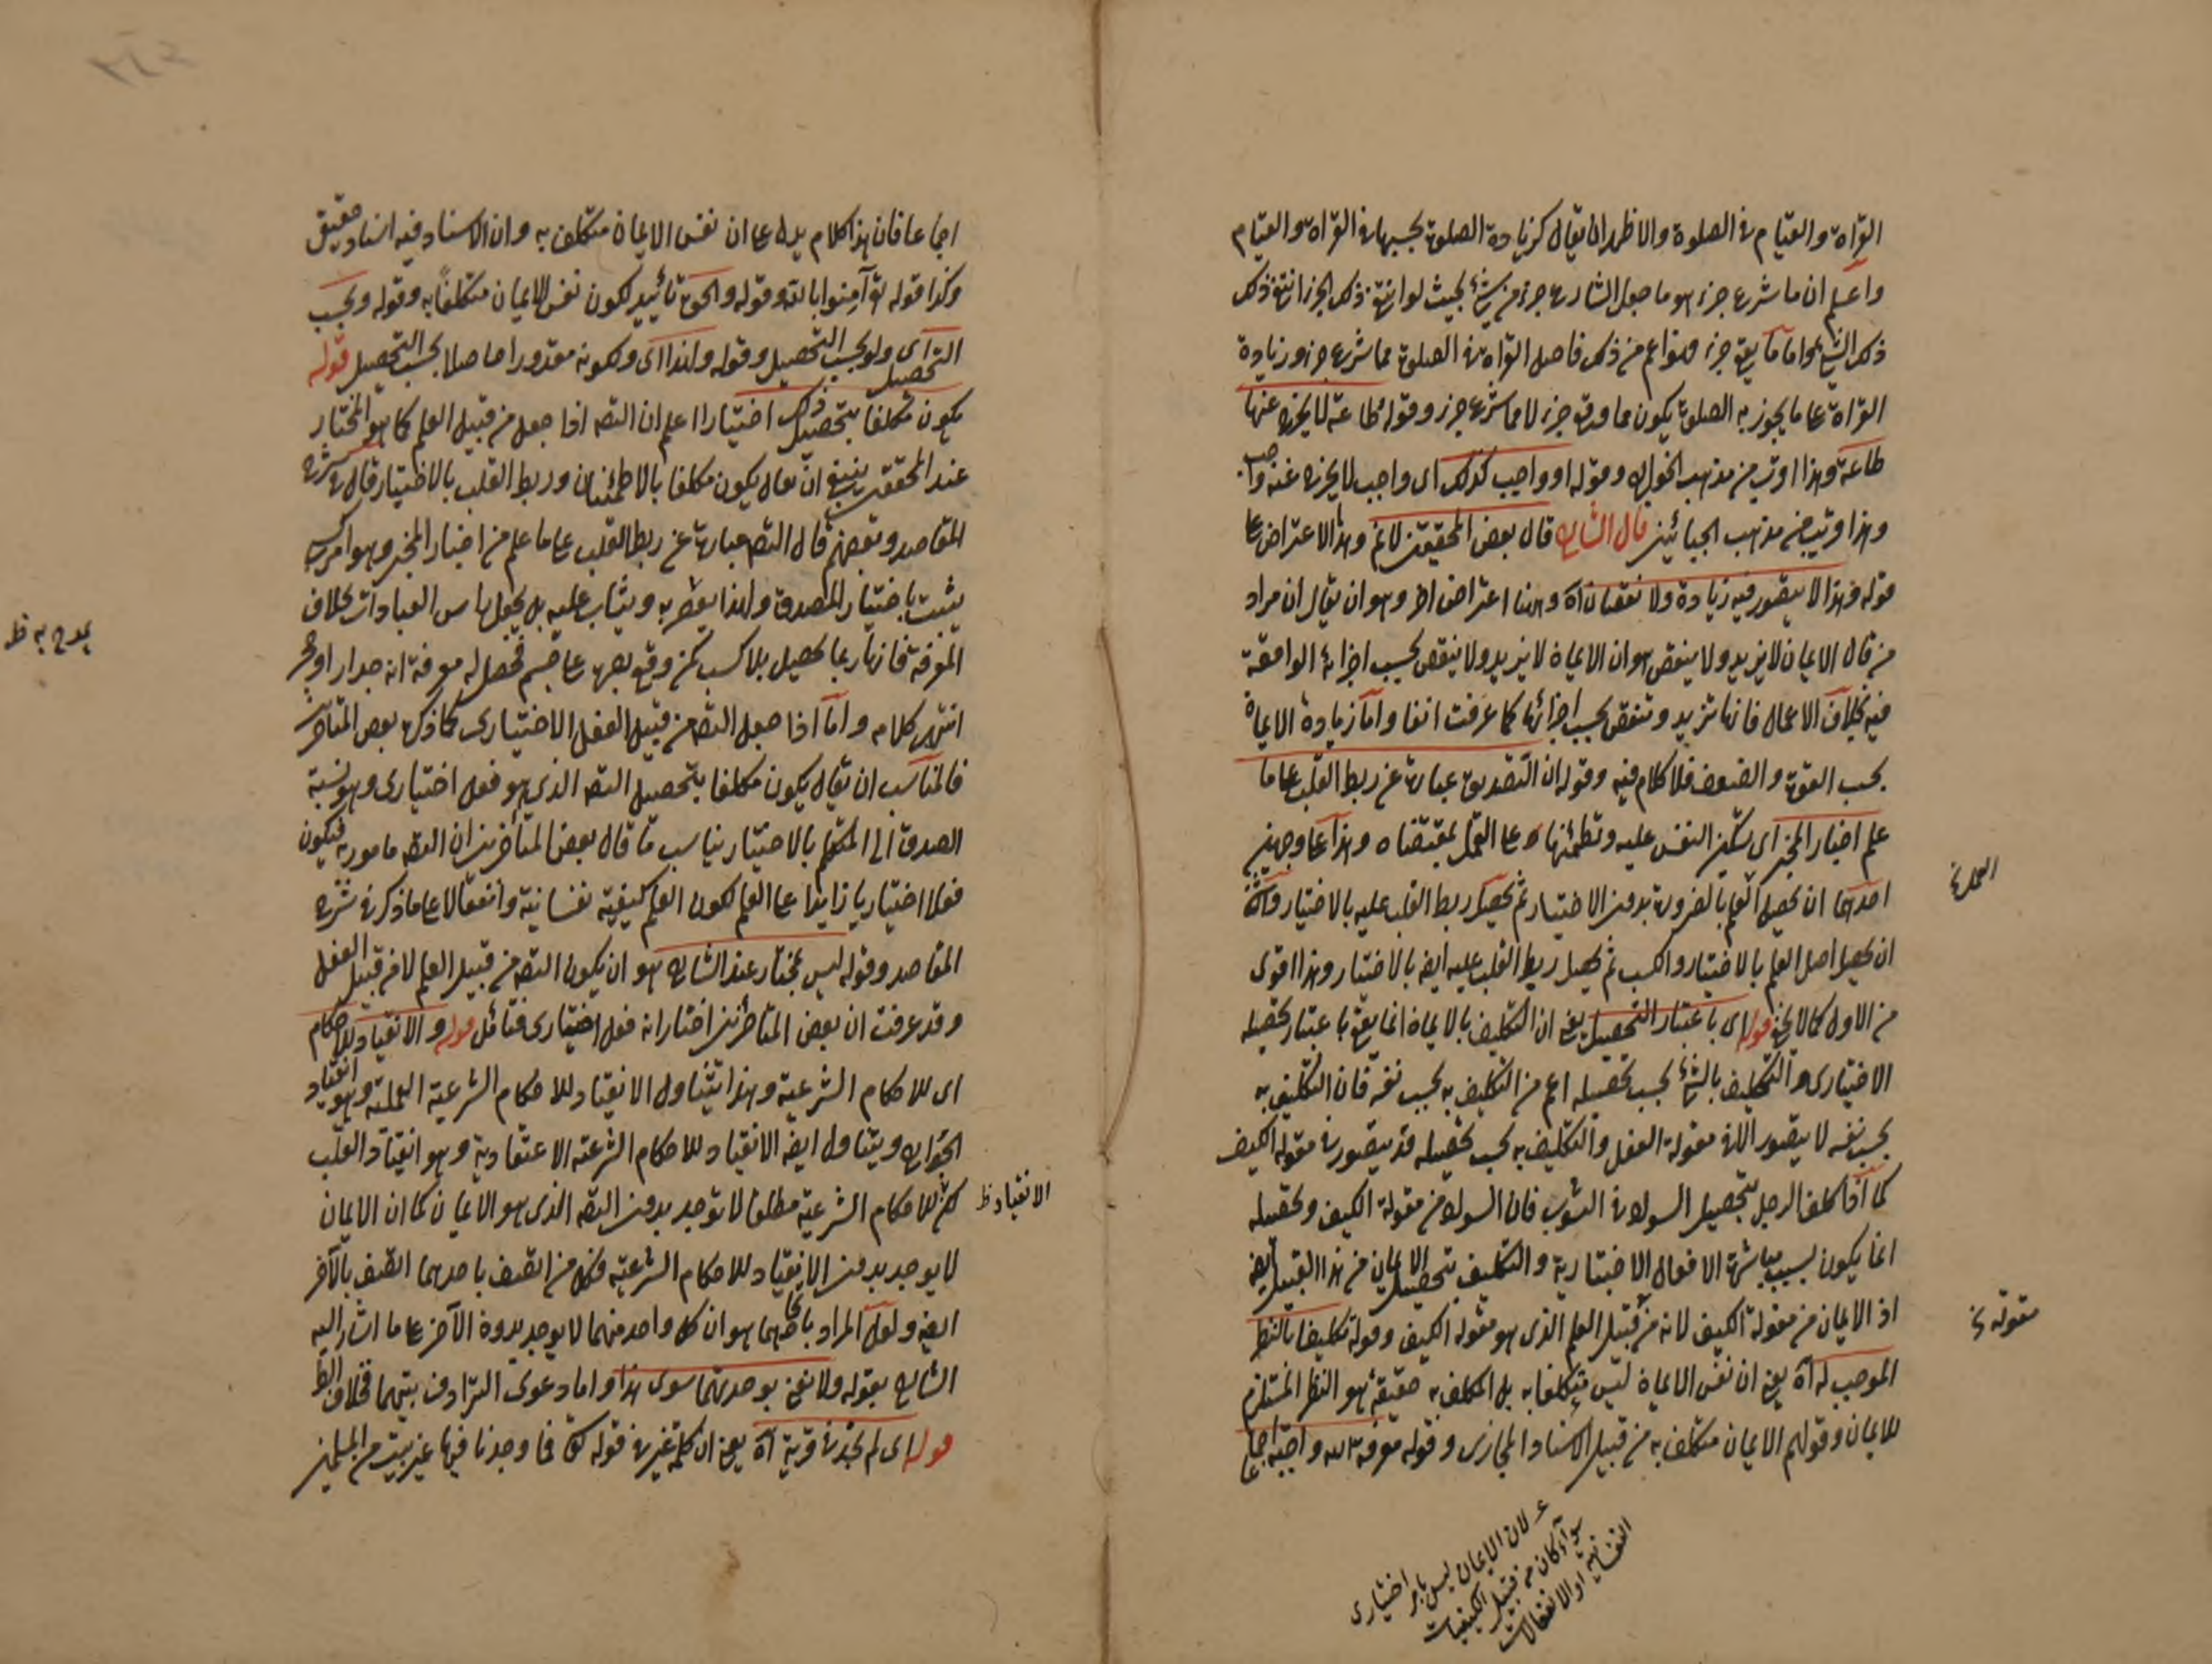 القراءة والقيام في الصلوة والاظهر ان يقال كزيادة الصلوة بحسبها في القراءة والقيام
واعلم ان ما شرع جزء هو ما جعل الشارع جزء من شئ بحيث لو انتفى ذلك الجزء انتفى ذلك
ذلك الشئ واما ما يقع جزء فهو اعم من ذلك فاصل القراءة في الصلوة مما شرع جزء وزيادة
القراءة على ما يجوز به الصلوة يكون مما وقع جزء لا مما شرع جزء وقوله طاعة لا يخرج عنها
طاعة وهذا اقرب من مذهب الخوارج وقوله او واجب كذلك اى واجب لا يخرج عنه واجب
وهذا اقرب من مذهب الجبائيين قال الشارح قال بعض المحققين لا نم وهذا الاعتراض على
قوله وهذا لا يتصور فيه زيادة ولا نقصان اه وههنا اعتراض اخر وهو ان يقال ان مراد
من قال الايمان لا يزيد ولا ينقص هو ان الايمان لا يزيد ولا ينقص بحسب اجزائه الواقعة
فيه بخلاف الاعمال فانها تزيد وتنقص بحسب اجزائها كما عرفت انفا واما زيادة الايمان
بحسب القوة والضعف فلا كلام فيه وقوله ان التصديق عبارة عن ربط القلب على ما
علم اخبار المخبر اى تسكين النفس عليه وتطمئنها على العمل بمقتضاه وهذا على وجهين
احدهما ان يحصل العلم بالضرورة بدون الاختيار ثم يحصل ربط القلب عليه بالاختيار والثانى
ان يحصل اصل العلم بالاختيار والكسب ثم يحصل ربط القلب عليه ايضا بالاختيار وهذا اقوى
من الاول كما لا يخفى قوله اى باعتبار التحصيل يعنى ان التكليف بالايمان انما يقع باعتبار تحصيله
الاختيارى والتكليف بالشئ بحسب تحصيله اعم من التكليف به بحسب نفسه فان التكليف به
بحسب نفسه لا يتصور الا في مقولة الفعل والتكليف به بحسب تحصيله قد يتصور في مقولة الكيف
كما اذا كلف الرجل بتحصيل السواد في الثوب فان السواد من مقولة الكيف وتحصيله
انما يكون بسبب مباشرة الافعال الاختيارية والتكليف بتحصيل الايمان من هذا القبيل ايضا
اذ الايمان من مقولة الكيف لانه من قبيل العلم الذى هو مقولة الكيف وقوله تكليفا بالنظر
الموجب له اه يعنى ان نفس الايمان ليس مكلفا به بل المكلف به حقيقة هو النظر المستلزم
للايمان وقولهم الايمان مكلف به من قبيل الاسناد المجازى وقوله معرفة الله واجبة اجماعا
العلم
مقولة
لان الايمان ليس بامر اختيارى
سواء كان من قبيل الكيفيات
النفسانية او الانفعالات
اجماعا فان هذا كلام يدل على ان نفس الايمان مكلف به وان الاسناد فيه اسناد حقيقى
وكذا قوله تع آمنوا بالله وقوله والحق تأييد لكون نفس الايمان مكلفا به وقوله وبحسب
التحصيل اى ولو بحسب التحصيل وقوله ولذا اى ولكونه مقدورا حاصلا بحسب التحصيل قوله
يكون مكلفا بتحصيل ذلك اختيارا اعلم ان التصـ اذا جعل من قبيل العلم كما هو المختار
عند المحققين ينبغى ان يقال يكون مكلفا بالاطمئنان وربط القلب بالاختيار قال في شرح
المقاصد وبعضهم قال التصـ عبارة عن ربط القلب على ما علم من اخبار المخبر وهو امر كسبى
يثبت باختيار المصدق ولهذا يؤمر به ويثاب عليه بل يجعل راس العبادات بخلاف
المعرفة فانها ربما تحصل بلا كسب كمن وقع بصره على جسم فحصل له معرفة انه جدار او حجر
انتهى كلامه واما اذا جعل التصـ من قبيل الفعل الاختيارى كما ذكره بعض المتأخرين
فالمناسب ان يقال يكون مكلفا بتحصيل التصـ الذى هو فعل اختيارى وهو نسبة
الصدق الى المتكلم بالاختيار يناسب ما قال بعض المتأخرين ان التصـ مامور به فيكون
فعلا اختياريا زايدا على العلم لكون العلم كيفية نفسانية وانفعالا على ما ذكر في شرح
المقاصد وقوله ليس بمختار عند الشارح هو ان يكون التصـ من قبيل العلم لا من قبيل الفعل
وقد عرفت ان بعض المتاخرين اختار انه فعل اختيارى فتأمل قوله والانقياد للاحكام
اى للاحكام الشرعية وهذا يتناول الانقياد للاحكام الشرعية العملية وهو انقياد
الجوارح ويتناول ايضا الانقياد للاحكام الشرعية الاعتقادية وهو انقياد القلب
لكن للاحكام الشرعية مطلقا لا توجد بدون التصـ الذى هو الايمان كما ان الايمان
لا يوجد بدون الانقياد للاحكام الشرعية فكل من اتصف باحدهما اتصف بالآخر
ايضا ولعل المراد باتحادهما هو ان كل واحد منهما لا يوجد بدون الآخر على ما اشار اليه
الشارح بقوله ولا نعنى بوحدتهما سوى هذا واما دعوى الترادف بينهما فخلاف الظ
قوله اى لم نجد في قرية اه يعنى ان كلمة غير في قوله تع فما وجدنا فيها غير بيت من المسلمين
يمدح به ظ
الانقياد ظ